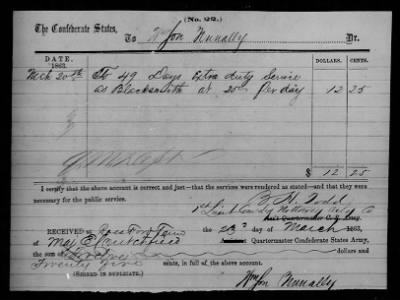 (No. 22.)
The Confederate States,
To Wm Jon Nunally Dr.
DATE. DOLLARS. CENTS.
1863.
Mch 20th To 49 Days Extra duty Service
as Blacksmith at 25c per day 12 25
$ 12 25
I certify that the above account is correct and just—that the services were rendered as stated—and that they were
necessary for the public service.
H. Todd
RECEIVED at
the 20 day of March 1863,
of Maj Quartermaster Confederate States Army,
the sum of dollars and
Twenty Five cents, in full of the above account.
(SIGNED IN DUPLICATE.)
Wm Jon Nunally